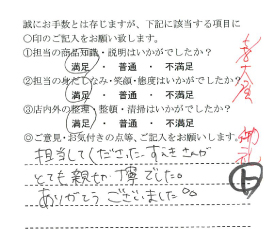 誠にお手数とは存じますが、下記に該当する項目に
〇印のご記入をお願い致します。
①担当の商品知識・説明はいかがでしたか?
満足 ・ 普通 ・ 不満足
②担当の身だしなみ・笑顔・態度はいかがでしたか?
満足 ・ 普通 ・ 不満足
③店内外の整理・整頓・清掃はいかがでしたか?
満足 ・ 普通 ・ 不満足
◎ご意見・お気付きの点等、ご記入をお願いします。
担当してくださった すずきさんが
とても親切丁寧でした。
ありがとうございました。
上